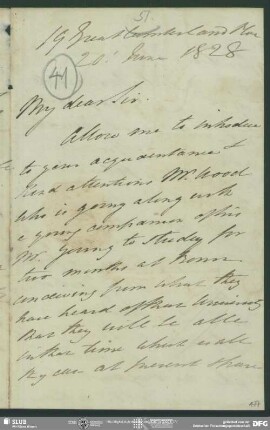 51.
19 Great Cumberland Place
20 June 1828
41
My dear Sir.
Allow me to introduce
to your acquaintance &
kind attentions Mr. Wood
who is going along with
a young companion of his
Mr. going to Study for
two months at Bonn
conceiving from what they
have heard of that University
that they will be able
in that time which is all
they can at present spare
SLUB
DFG